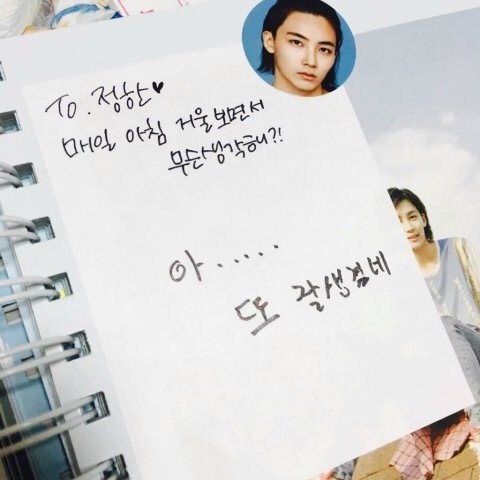 To. 정한♥
매일 아침 거울보면서
무슨생각해니?!
아.....
또 잘생겼네